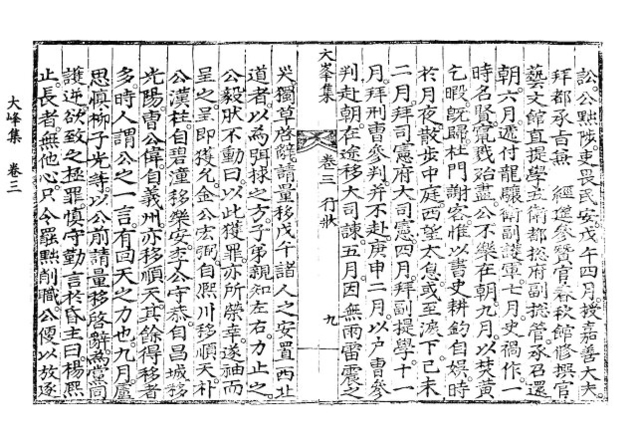 訟公黜陟吏畏民安戊午四月授嘉善大夫
拜都承旨兼 經筵參贊官春秋館修撰官
藝文館直提學主衛都摠府副摠管承召還
朝六月遞付龍驤衛副護軍七月史禍作一
時名賢竄戮殆盡公不樂在朝九月以焚黃
乞暇旣歸杜門謝客惟以書史耕釣自娛時
於月夜散步中庭西望太息或至流下己未
二月拜司憲府大司憲四月拜副提學十一
月拜刑曹參判并不赴庚申二月以户曹參
判赴朝在途移大司諫五月因無雨雷震之
大峯集 卷三 行狀 九
災獨草啓辭請量移戊午諸人之安置西北
道者以為弭捄之方子弟親知左右力止之
公毅肰不動曰以此獲罪亦所榮幸遂袖而
呈之呈卽獲允金公宏弼自熙川移順天朴
公漢柱自碧潼移樂安李公守恭自昌城移
光陽曹公偉自義州亦移順天其餘得移者
多時人謂公之一言有回天之力也九月盧
思愼柳子光等以公前請量移啓辭為黨同
護逆欲致之極罪愼守勤言於昏主曰楊熙
止長者無他心只令罷黜削職公便以放逐
大峰集 卷三